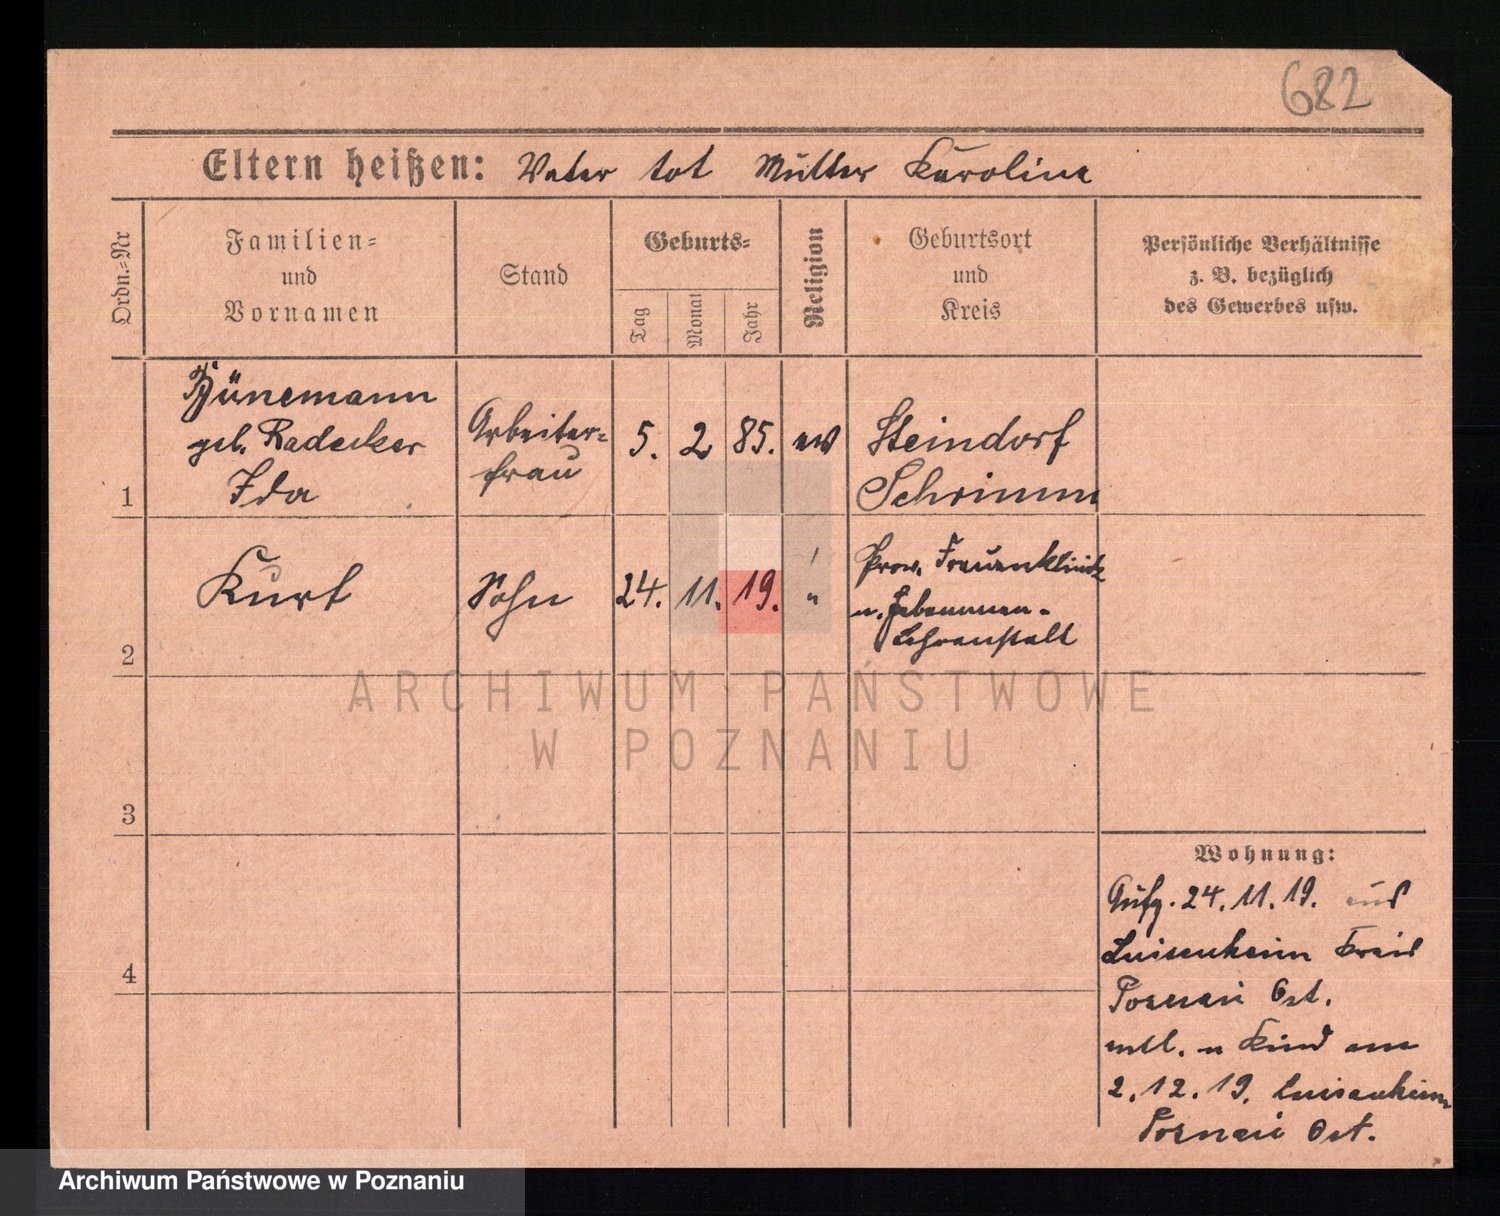 682
Eltern heißen: Vater tot Mutter Karoline
Ordn.=Nr
Familien=
und
Vornamen
Stand
Geburts=
Tag
Monat
Jahr
Religion
Geburtsort
und
Kreis
Persönliche Verhältnisse
z. B. bezüglich
des Gewerbes usw.
1
Hünemann
geb. Radecker
Ida
Arbeiter=
frau
5. 2 85. ev
Steindorf
Schrimm
2
Kurt
Sohn
24. 11. 19. "
Prov. Frauenklinik
u. Hebammen-
Lehranstalt
3
4
Wohnung:
Aufg. 24. 11. 19. aus
Luisenhain Kreis
Posen Ost.
entl. u Kind am
2. 12. 19. Luisenhain
Posen Ost.
ARCHIWUM PAŃSTWOWE
W POZNANIU
Archiwum Państwowe w Poznaniu